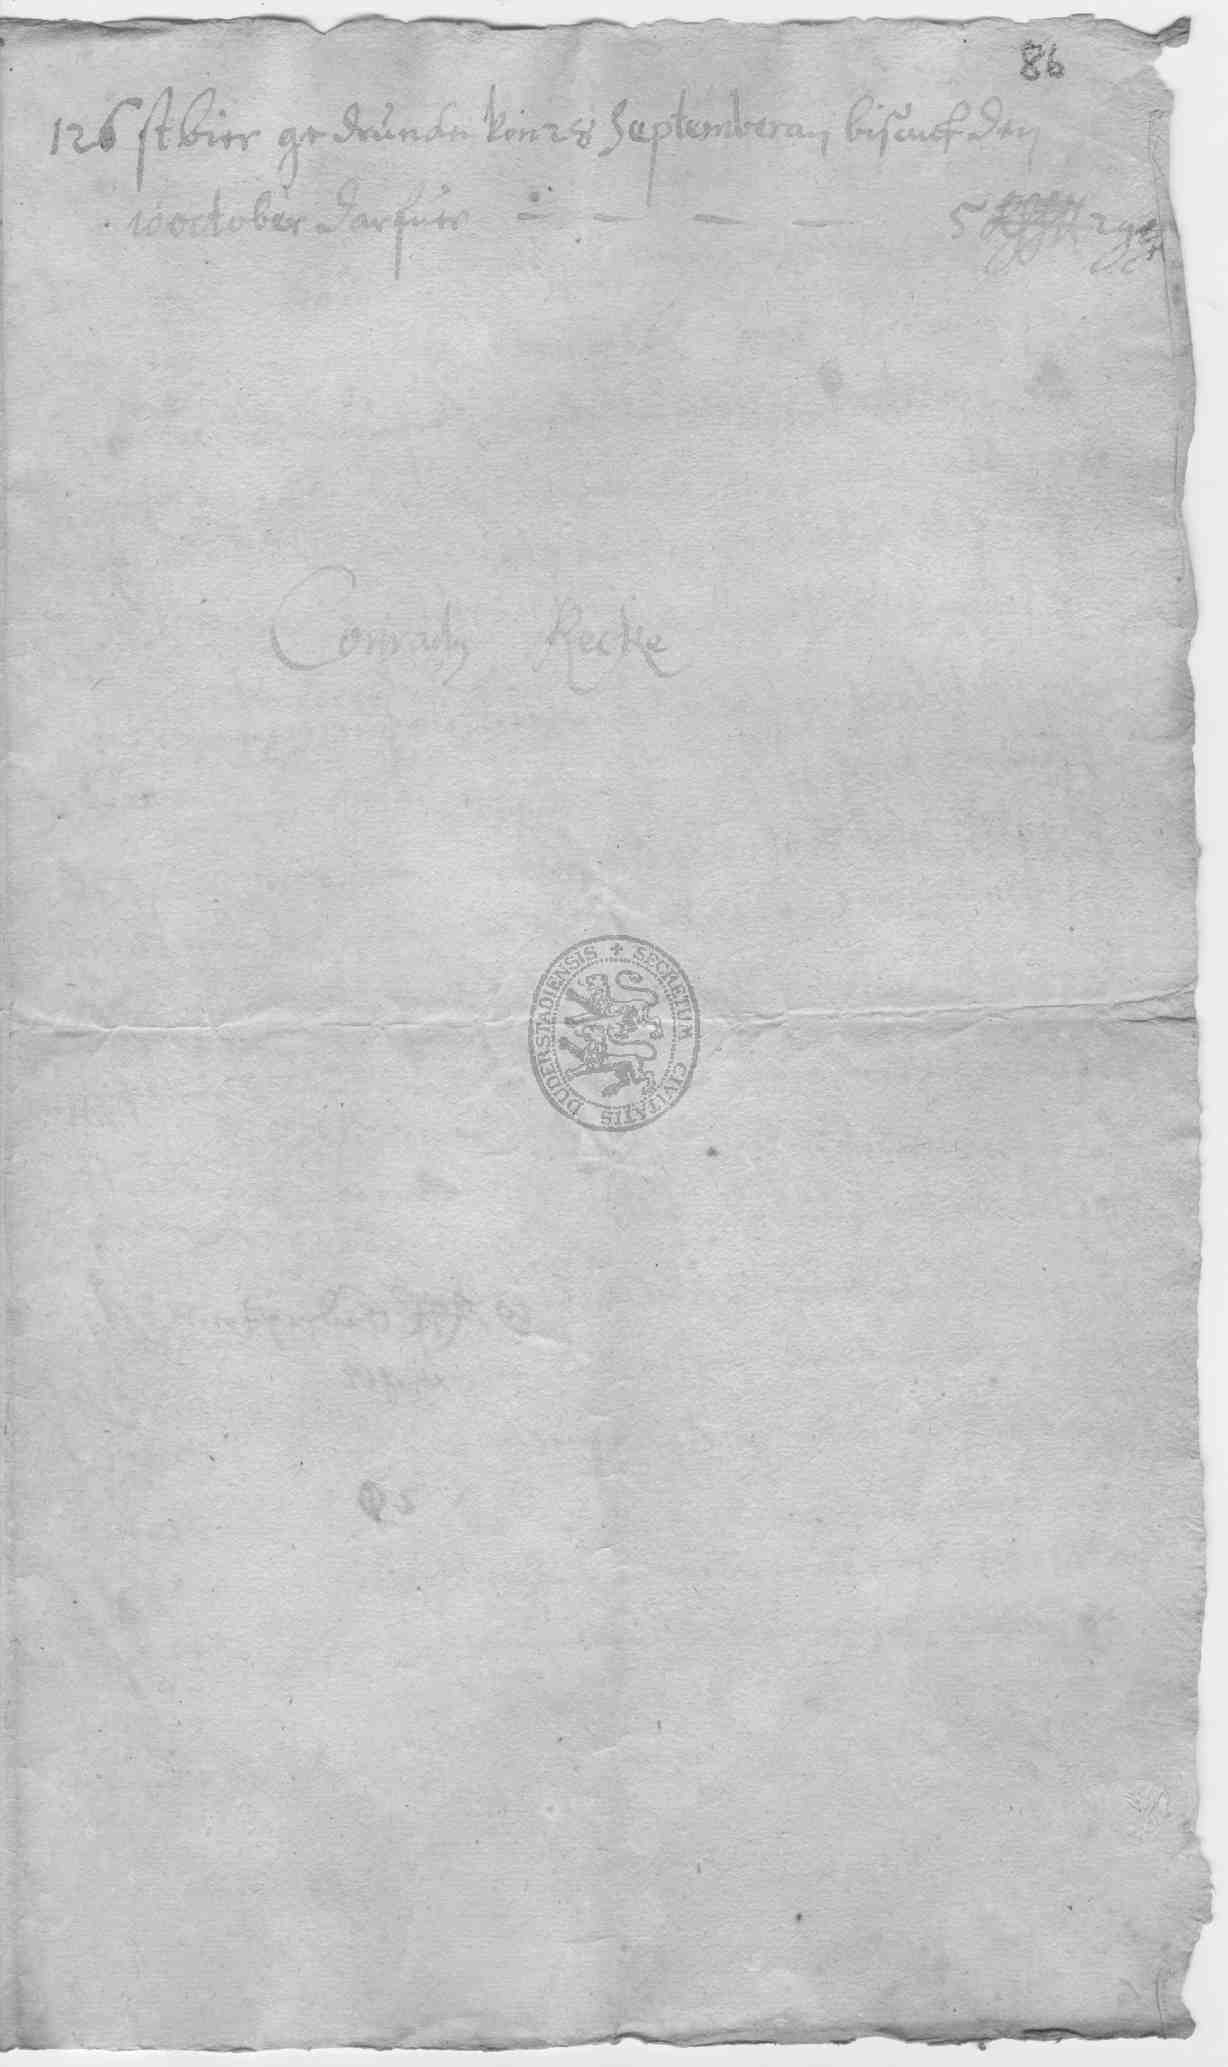 86
126 st bier ge drunken 28 September an bis auf den
10 october darfuer — — — — 5 2 ggr
Conrady Recke
SECRETUM CIVITATIS DUDERSTADIENSIS